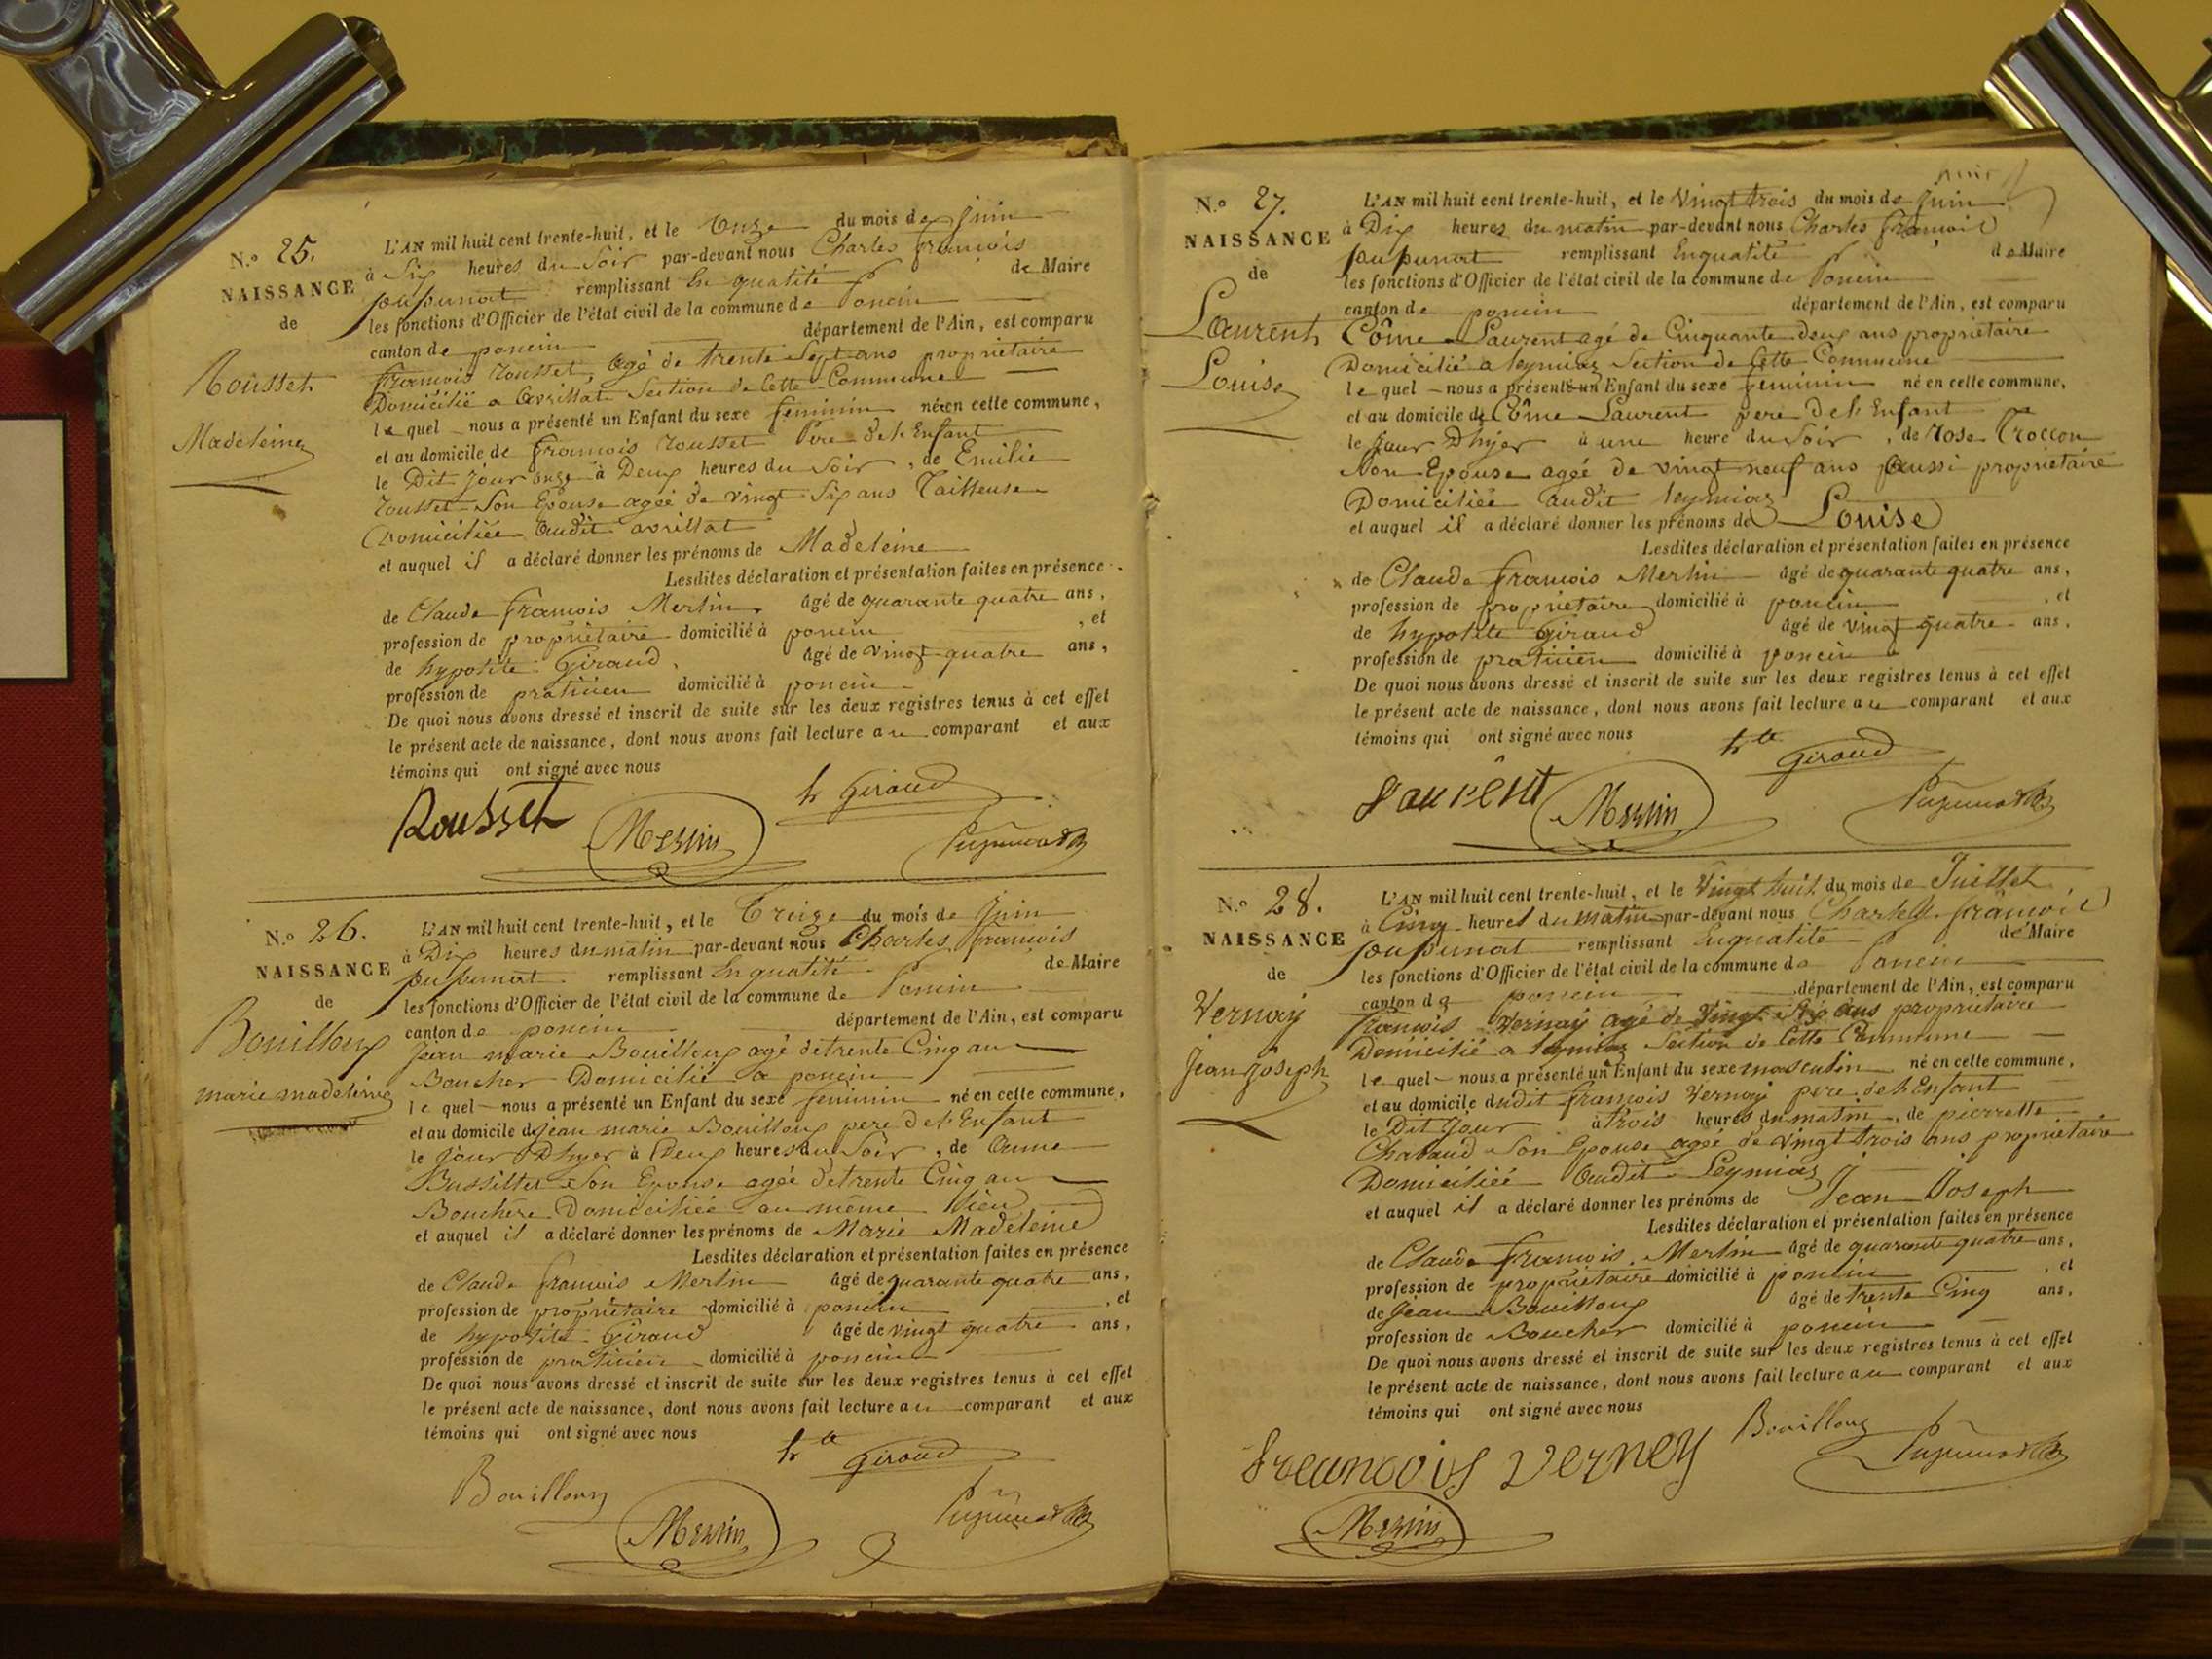 N.º 25.
NAISSANCE
de
Rousset
Madeleine
L'AN mil huit cent trente-huit, et le Onze du mois de juin
à Six heures du Soir par-devant nous Charles François
pupunat remplissant En qualité de Maire
les fonctions d'Officier de l'état civil de la commune de Poncin
canton de poncin département de l'Ain, est comparu
François rousset, agé de trente Sept ans propriétaire
Domicilié a avrillat Section de Cette Commune
le quel nous a présenté un Enfant du sexe feminin née en cette commune,
et au domicile de François rousset Pere de l'Enfant
le Dit jour onze à Deux heures du Soir, de Emilie
rousset Son Epouse agée de vingt Six ans Tailleuse
Domiciliée audit avrillat
et auquel il a déclaré donner les prénoms de Madeleine
Lesdites déclaration et présentation faites en présence
de Claude françois Merlin, âgé de quarante quatre ans,
profession de propriétaire domicilié à poncin, et
de hypolite Giraud, âgé de vingt quatre ans,
profession de praticien domicilié à poncin
De quoi nous avons dressé et inscrit de suite sur les deux registres tenus à cet effet
le présent acte de naissance, dont nous avons fait lecture au comparant et aux
témoins qui ont signé avec nous
Rousset Merlin h Giraud Pupunat
N.º 26.
NAISSANCE
de
Bouilloux
marie madeleine
L'AN mil huit cent trente-huit, et le Treize du mois de Juin
à Dix heures du matin par-devant nous Charles François
pupunat remplissant En qualité de Maire
les fonctions d'Officier de l'état civil de la commune de Poncin
canton de poncin département de l'Ain, est comparu
Jean marie Bouilloux agé de trente Cinq an
Boucher Domicilié a poncin
le quel nous a présenté un Enfant du sexe feminin né en cette commune,
et au domicile de jean marie Bouilloux pere de l'Enfant
le jour Dhyer à Deux heures du Soir, de Anne
Bussillet Son Epouse agée de trente Cinq an
Bouchère Domiciliée au même lieu
et auquel il a déclaré donner les prénoms de Marie Madeleine
Lesdites déclaration et présentation faites en présence
de Claude françois Merlin âgé de quarante quatre ans,
profession de propriétaire domicilié à poncin, et
de hypolite Giraud âgé de vingt quatre ans,
profession de praticien domicilié à poncin
De quoi nous avons dressé et inscrit de suite sur les deux registres tenus à cet effet
le présent acte de naissance, dont nous avons fait lecture au comparant et aux
témoins qui ont signé avec nous
Bouilloux Merlin hte Giraud Pupunat
N.º 27.
NAISSANCE
de
Laurent
Louise
L'AN mil huit cent trente-huit, et le Vingt trois du mois de Juin
à Dix heures du matin par-devant nous Charles françois
pupunat remplissant Enqualité de Maire
les fonctions d'Officier de l'état civil de la commune de Poncin
canton de poncin département de l'Ain, est comparu
Côme Laurent agé de Cinquante deux ans propriétaire
Domicilié a leymiaz Section de Cette Commune
le quel nous a présenté un Enfant du sexe feminin né en cette commune,
et au domicile de Côme Laurent pere De l'Enfant
le jour Dhyer à une heure du Soir, de rose Croccon
Son Epouse agée de vingt neuf ans aussi propriétaire
Domiciliée audit leymiaz
et auquel il a déclaré donner les prénoms de Louise
Lesdites déclaration et présentation faites en présence
de Claude françois Merlin âgé de quarante quatre ans,
profession de propriétaire domicilié à poncin, et
de hypolite Giraud âgé de vingt quatre ans,
profession de praticien domicilié à poncin
De quoi nous avons dressé et inscrit de suite sur les deux registres tenus à cet effet
le présent acte de naissance, dont nous avons fait lecture au comparant et aux
témoins qui ont signé avec nous
Laurent Merlin hte Giraud Pupunat
N.º 28.
NAISSANCE
de
Vernay
Jean Joseph
L'AN mil huit cent trente-huit, et le Vingt huit du mois de Juillet
à Cinq heures du matin par-devant nous Charles françois
pupunat remplissant Enqualité de Maire
les fonctions d'Officier de l'état civil de la commune de Poncin
canton de poncin département de l'Ain, est comparu
françois Vernay agé de Vingt Six ans propriétaire
Domicilié a leymiaz Section de Cette Commune
le quel nous a présenté un Enfant du sexe masculin né en cette commune,
et au domicile dudit françois Vernay pere de l'Enfant
le Dit jour à trois heures du matin, de pierrette
Chabaud Son Epouse agée de vingt trois ans propriétaire
Domiciliée audit Leymiaz
et auquel il a déclaré donner les prénoms de Jean Joseph
Lesdites déclaration et présentation faites en présence
de Claude françois Merlin âgé de quarante quatre ans,
profession de propriétaire domicilié à poncin, et
de jean Bouilloux âgé de trente Cinq ans,
profession de Boucher domicilié à poncin
De quoi nous avons dressé et inscrit de suite sur les deux registres tenus à cet effet
le présent acte de naissance, dont nous avons fait lecture au comparant et aux
témoins qui ont signé avec nous
Bouilloux
francois verney Pupunat
Merlin